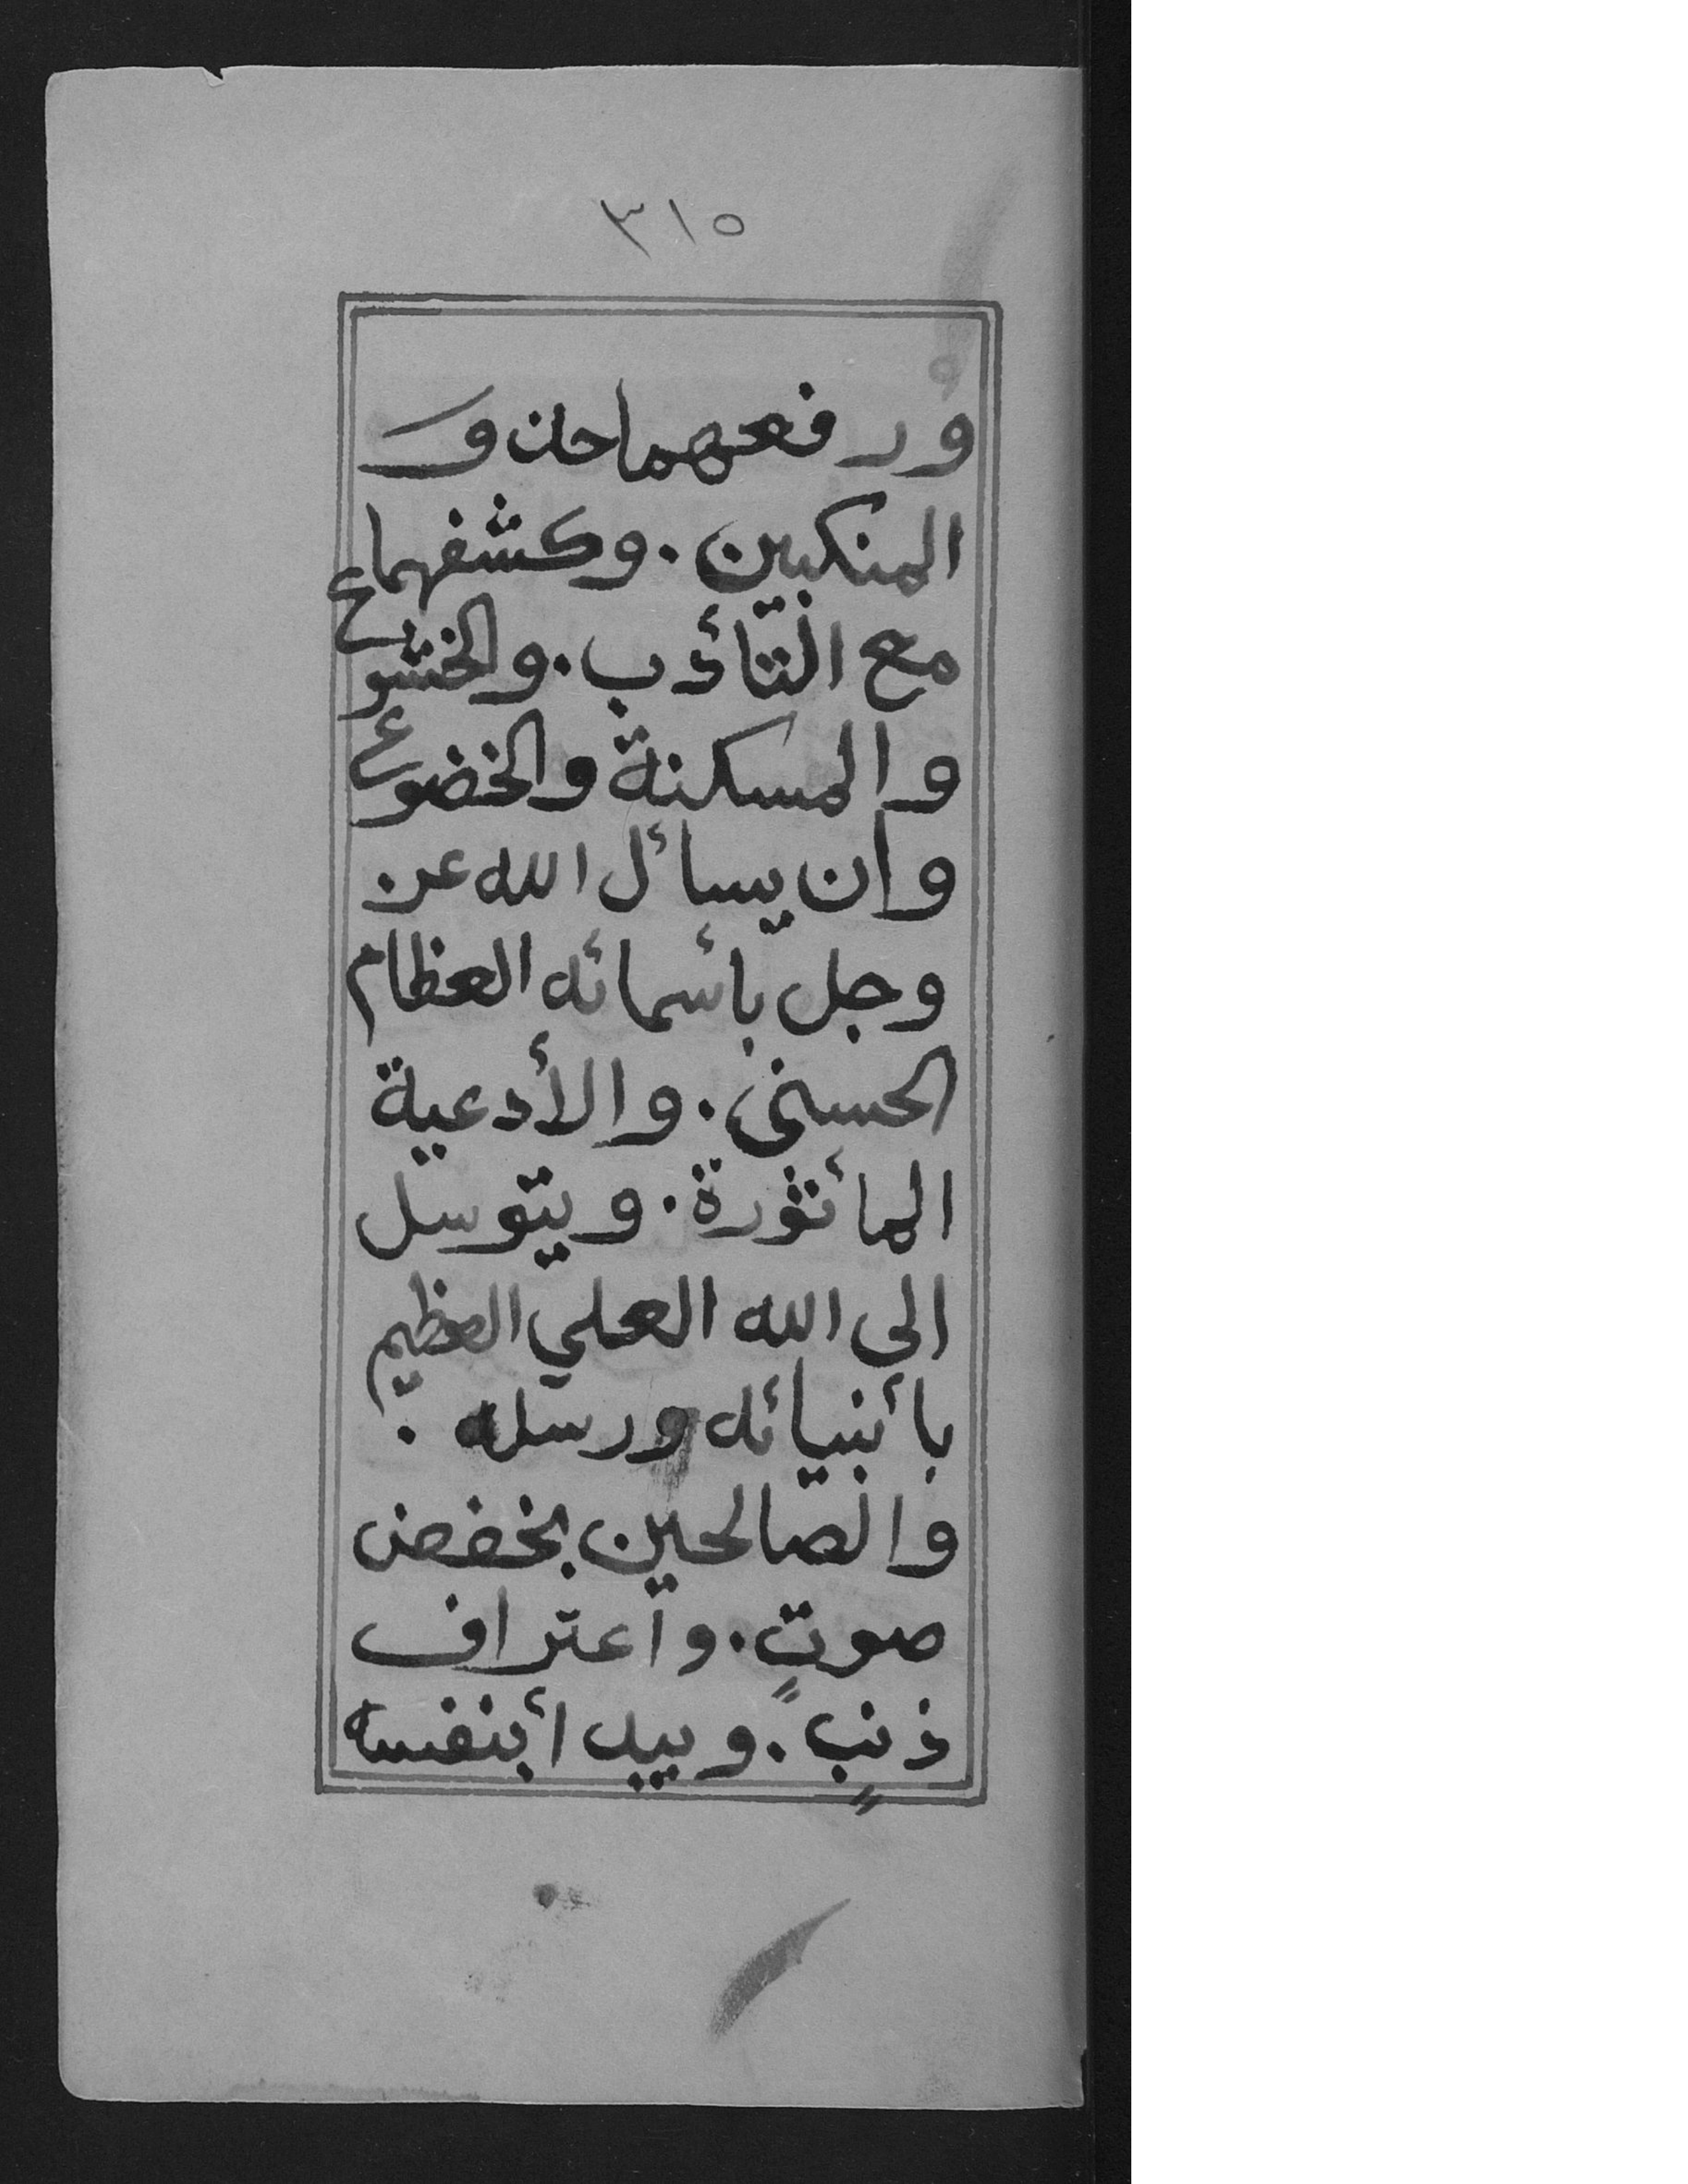 ٣١٥
ورفعهما حذو
المنكبين . وكشفهما
مع التأدب . والخشوع
والمسكنة والخضوع
وأن يسأل الله عز
وجل بأسمائه العظام
الحسنى . والأدعية
المأثورة . ويتوسل
الى الله العلي العظيم
بأنبيائه ورسله .
والصالحين بخفض
صوتٍ . واعتراف
ذنبٍ . ويبدأ بنفسه